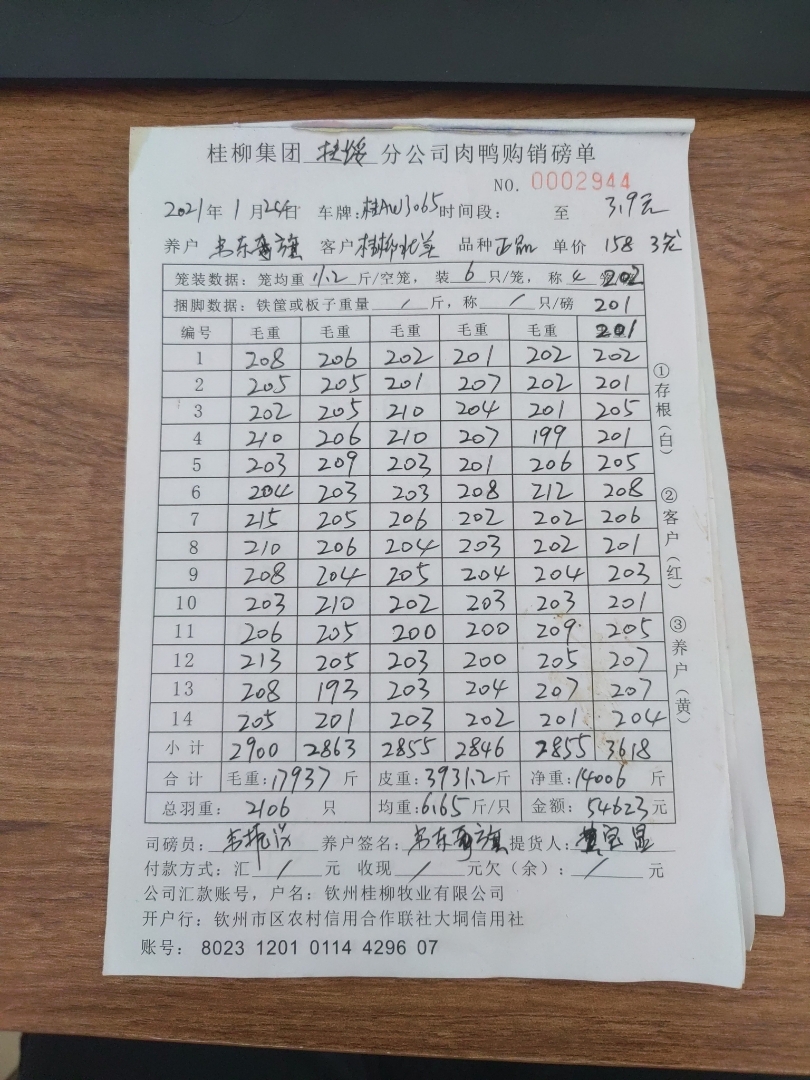 桂柳集团 桂绥 分公司肉鸭购销磅单
NO. 0002944
2021年 1月24日 车牌: 桂AW3065 时间段: 至 3.9元
养户 韦东 客户 桂柳 品种 正品 单价 158 3元
笼装数据: 笼均重 11.2 斤/空笼, 装 6 只/笼, 称 4 202
捆脚数据: 铁筐或板子重量 / 斤, 称 / 只/磅 201
编号 毛重 毛重 毛重 毛重 毛重 201
1 208 206 202 201 202 202
2 205 205 201 207 202 201
3 202 205 210 204 201 205
4 210 206 210 207 199 201
5 203 209 203 201 206 205
6 204 203 203 208 212 208
7 215 205 206 202 202 206
8 210 206 204 203 202 201
9 208 204 205 204 204 203
10 203 210 202 203 203 201
11 206 205 200 200 209 205
12 213 205 203 200 205 207
13 208 193 203 204 207 207
14 205 201 203 202 201 204
小计 2900 2863 2855 2846 2855 3618
合计 毛重: 17937 斤 皮重: 3931.2 斤 净重: 14006 斤
总羽重: 2106 只 均重: 6.65 斤/只 金额: 54623 元
司磅员: 韦 养户签名: 韦东 提货人:
付款方式: 汇 / 元 收现 / 元欠(余): / 元
公司汇款账号,户名: 钦州桂柳牧业有限公司
开户行: 钦州市区农村信用合作联社大垌信用社
账号: 8023 1201 0114 4296 07
①存根(白)
②客户(红)
③养户(黄)